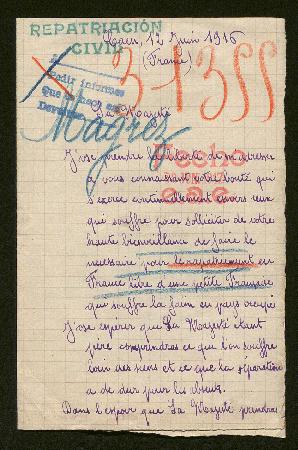 REPATRIACIÓN
CIVIL
Caen, 12 Juin 1916
(France)
31355
Pedir informes
que se hace en
Sa Majesté
Magrez
J'ose prendre la liberté de m'adresser
à vous connaissant votre bonté qui
s'exerce continuellement envers ceux
Hecho
qui souffre pour solliciter de votre
haute bienveillance de faire le
nécessaire pour le rapatriement en
France libre d'une petite Française
qui souffre la faim en pays occupé
J'ose espérer que Sa Majesté étant
père comprendras ce que l'on souffre
loin des siens et ce que la séparation
a de dur pour les absents.
Dans l'espoir que Sa Majesté prendras